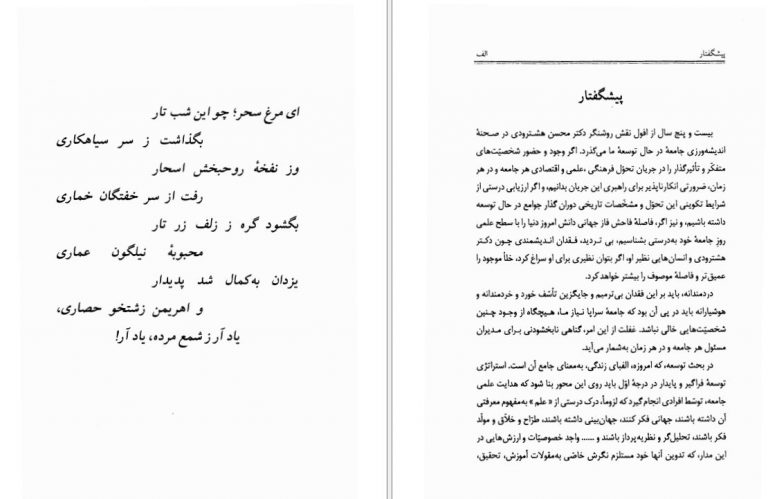 پیشگفتار
الف
پیشگفتار
بیست و پنج سال از افول نقش روشنگر دکتر محسن هشترودی در صحنهٔ
اندیشه‌ورزی جامعه در حال توسعهٔ ما می‌گذرد. اگر وجود و حضور شخصیّت‌های
متفکّر و تأثیرگذار را در جریان تحوّل فرهنگی ،علمی و اقتصادی هر جامعه و در هر
زمان، ضرورتی انکارناپذیر برای راهبری این جریان بدانیم، و اگر ارزیابی درستی از
شرایط تکوینی این تحوّل و مشخّصات تاریخی دوران گذار جوامع در حال توسعه
داشته باشیم، و نیز اگر، فاصلهٔ فاحش فاز جهانی دانش امروز دنیا را با سطح علمی
روز جامعهٔ خود به‌درستی بشناسیم، بی تردید، فقدان اندیشمندی چون دکتر
هشترودی و انسان‌هایی نظیر او، اگر بتوان نظیری برای او سراغ کرد، خلأ موجود را
عمیق‌تر و فاصلهٔ موصوف را بیشتر خواهد کرد.
دردمندانه، باید بر این فقدان بی‌ترمیم و جایگزین تأسّف خورد و خردمندانه و
هوشیارانه باید در پی آن بود که جامعهٔ سراپا نیاز ما، هیچگاه از وجود چنین
شخصیّت‌هایی خالی نباشد. غفلت از این امر، گناهی نابخشودنی برای مدیران
مسئول هر جامعه و در هر زمان به‌شمار می‌آید.
در بحث توسعه، که امروزه، الفبای زندگی، به‌معنای جامع آن است. استراتژی
توسعهٔ فراگیر و پایدار در درجهٔ اوّل باید روی این محور بنا شود که هدایت علمی
جامعه، توسّط افرادی انجام گیرد که لزوماً، درک درستی از « علم » به‌مفهوم معرفتی
آن داشته باشند، جهانی فکر کنند، جهان‌بینی داشته باشند، طرّاح و خلّاق و مولّد
فکر باشند، تحلیل‌گر و نظریه‌پرداز باشند و ...... واجد خصوصیّات و ارزش‌هایی در
این مدار، که تدوین آنها خود مستلزم نگرش خاصّی به‌مقولات آموزش، تحقیق،
ای مرغ سحر؛ چو این شب تار
بگذاشت ز سر سیاهکاری
وز نفخهٔ روحبخش اسحار
رفت از سر خفتگان خماری
بگشود گره ز زلف زر تار
محبوبهٔ نیلگون عماری
یزدان به‌کمال شد پدیدار
و اهریمن زشتخو حصاری،
یاد آر ز شمع مرده، یاد آر!